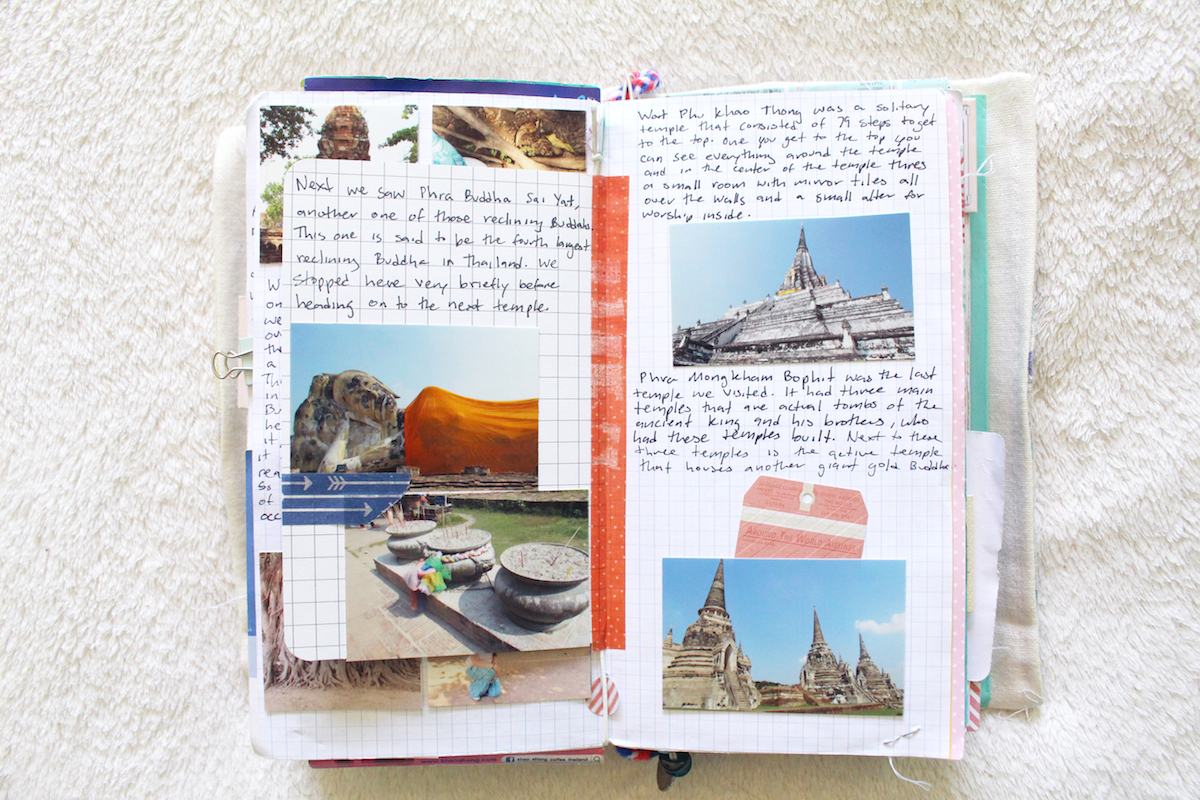 Next we saw Phra Buddha Sai Yat,
another one of those reclining Buddahs.
This one is said to be the fourth largest
reclining Buddha in Thailand. We
stopped here very briefly before
heading on to the next temple.
W
on
we
ou
the
a
Thi
in
Bu
he
it
rea
So
of
occ
Wat Phu Khao Thong was a solitary
temple that consisted of 79 steps to get
to the top. One you get to the top you
can see everything around the temple
and in the center of the temple theres
a small room with mirror tiles all
over the walls and a small alter for
worship inside.
Phra Mongkham Bophit was the last
temple we visited. It had three main
temples that are actual tombs of the
ancient king and his brothers, who
had these temples built. Next to these
three temples is the active temple
that houses another giant gold Buddha.
Around The World Against